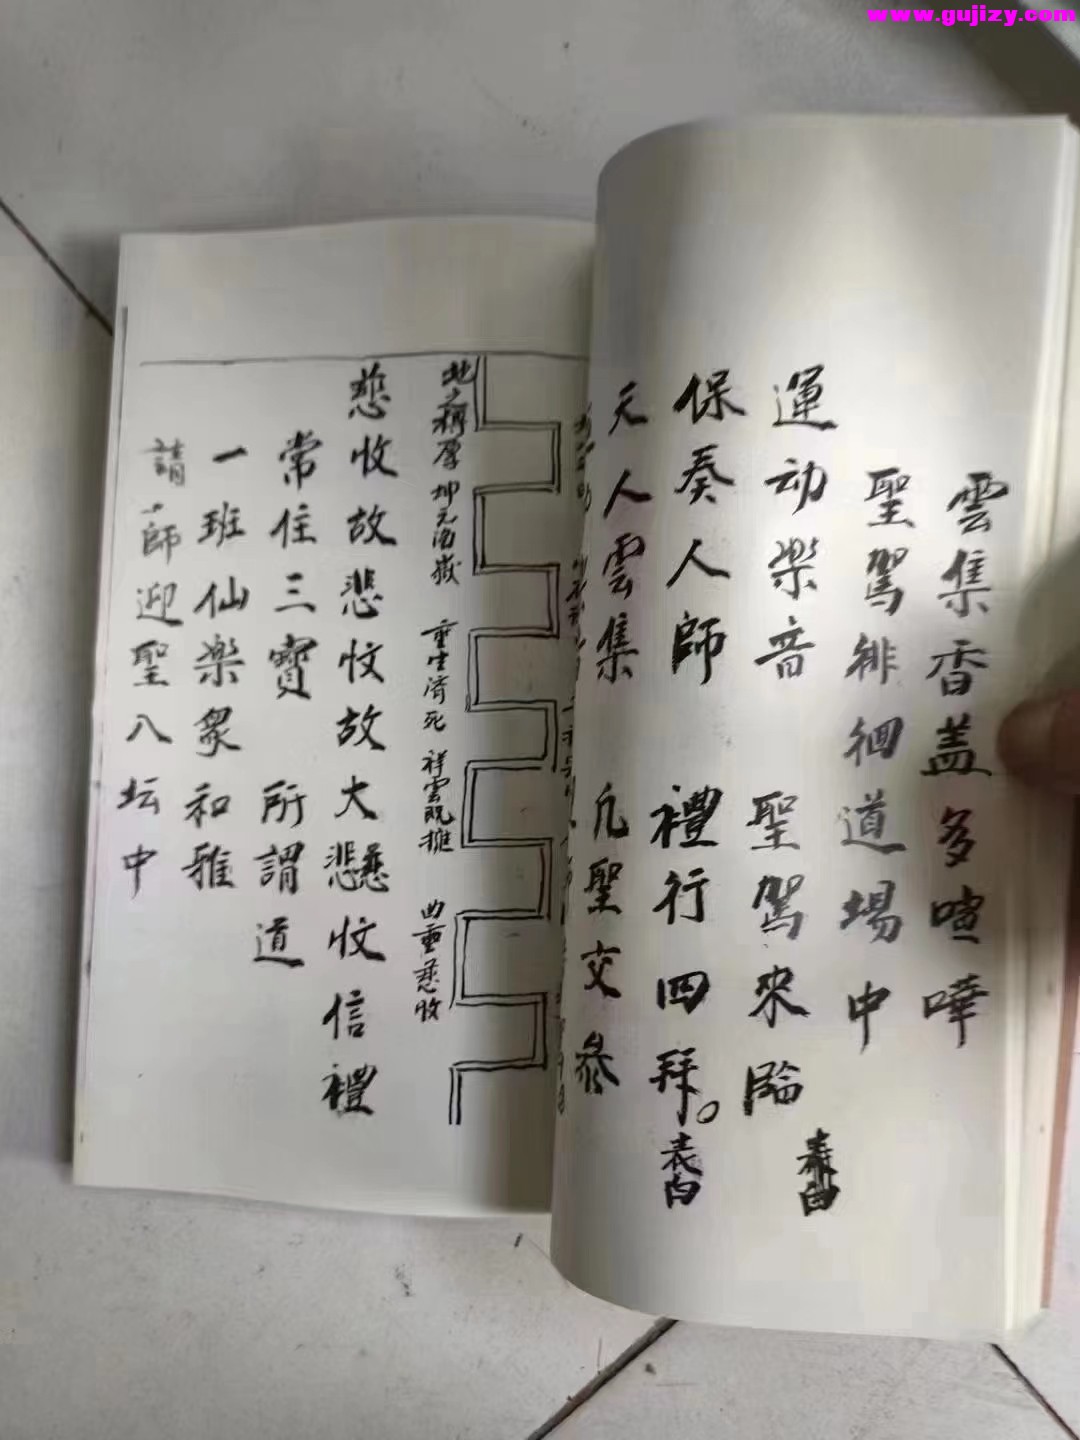 www.gujizy.com
雲集香盖多喧嘩
聖駕徘徊道場中
運动楽音 聖駕來臨
表白
保奏人師 禮行四拜。
表白
天人雲集 凡聖交參
此之稱厚 坤元海嶽 重生済死 祥雲既擁 曲垂慈收
慈收故悲收故大悲收信禮
常住三寶 所謂道
一班仙楽衆和雅
請師迎聖八坛中